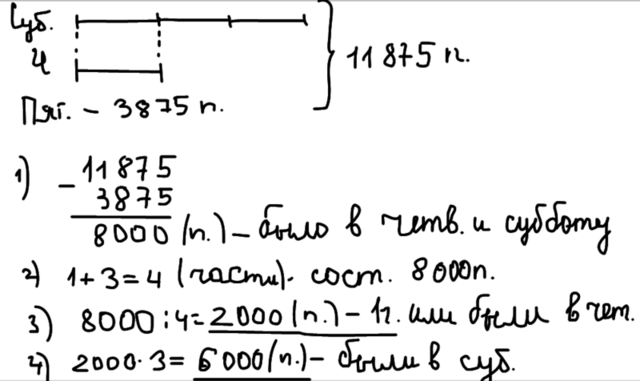 Суб.
Ч
11875 п.
Пят. - 3875 п.
1) - 11875
3875
8000 (п.) - было в четв. и субботу
2) 1+3=4 (части). сост. 8000п.
3) 8000:4=2000 (п.) - 1ч. или были в чет.
4) 2000·3= 6000 (п.) - были в суб.